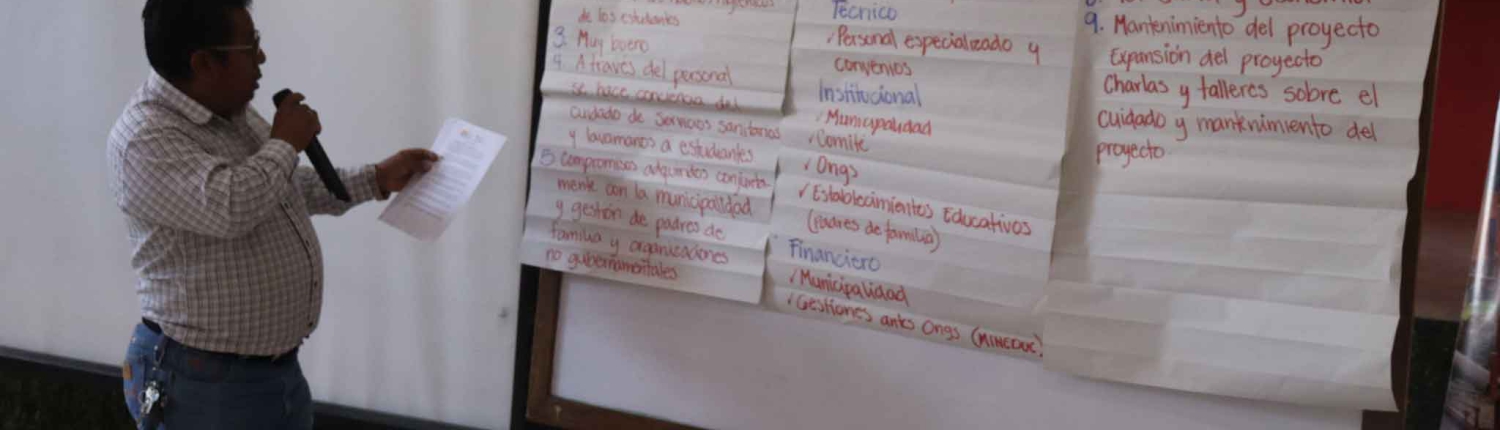 de los estudiantes
3. Muy bueno
4. A través del personal
se hace conciencia del
cuidado de servicios sanitarios
y lavamanos a estudiantes
5 Compromisos adquiridos conjunta-
mente con la municipalidad
y gestión de padres de
familia y organizaciones
no gubernamentales
Técnico
✓Personal especializado y
convenios
Institucional
✓Municipalidad
✓Comité
✓Ongs
✓Establecimientos Educativos
(padres de familia)
Financiero
✓Municipalidad
✓Gestiones antes Ongs (MINEDUC)
9. Mantenimiento del proyecto
Expansión del proyecto
Charlas y talleres sobre el
cuidado y mantenimiento del
proyecto